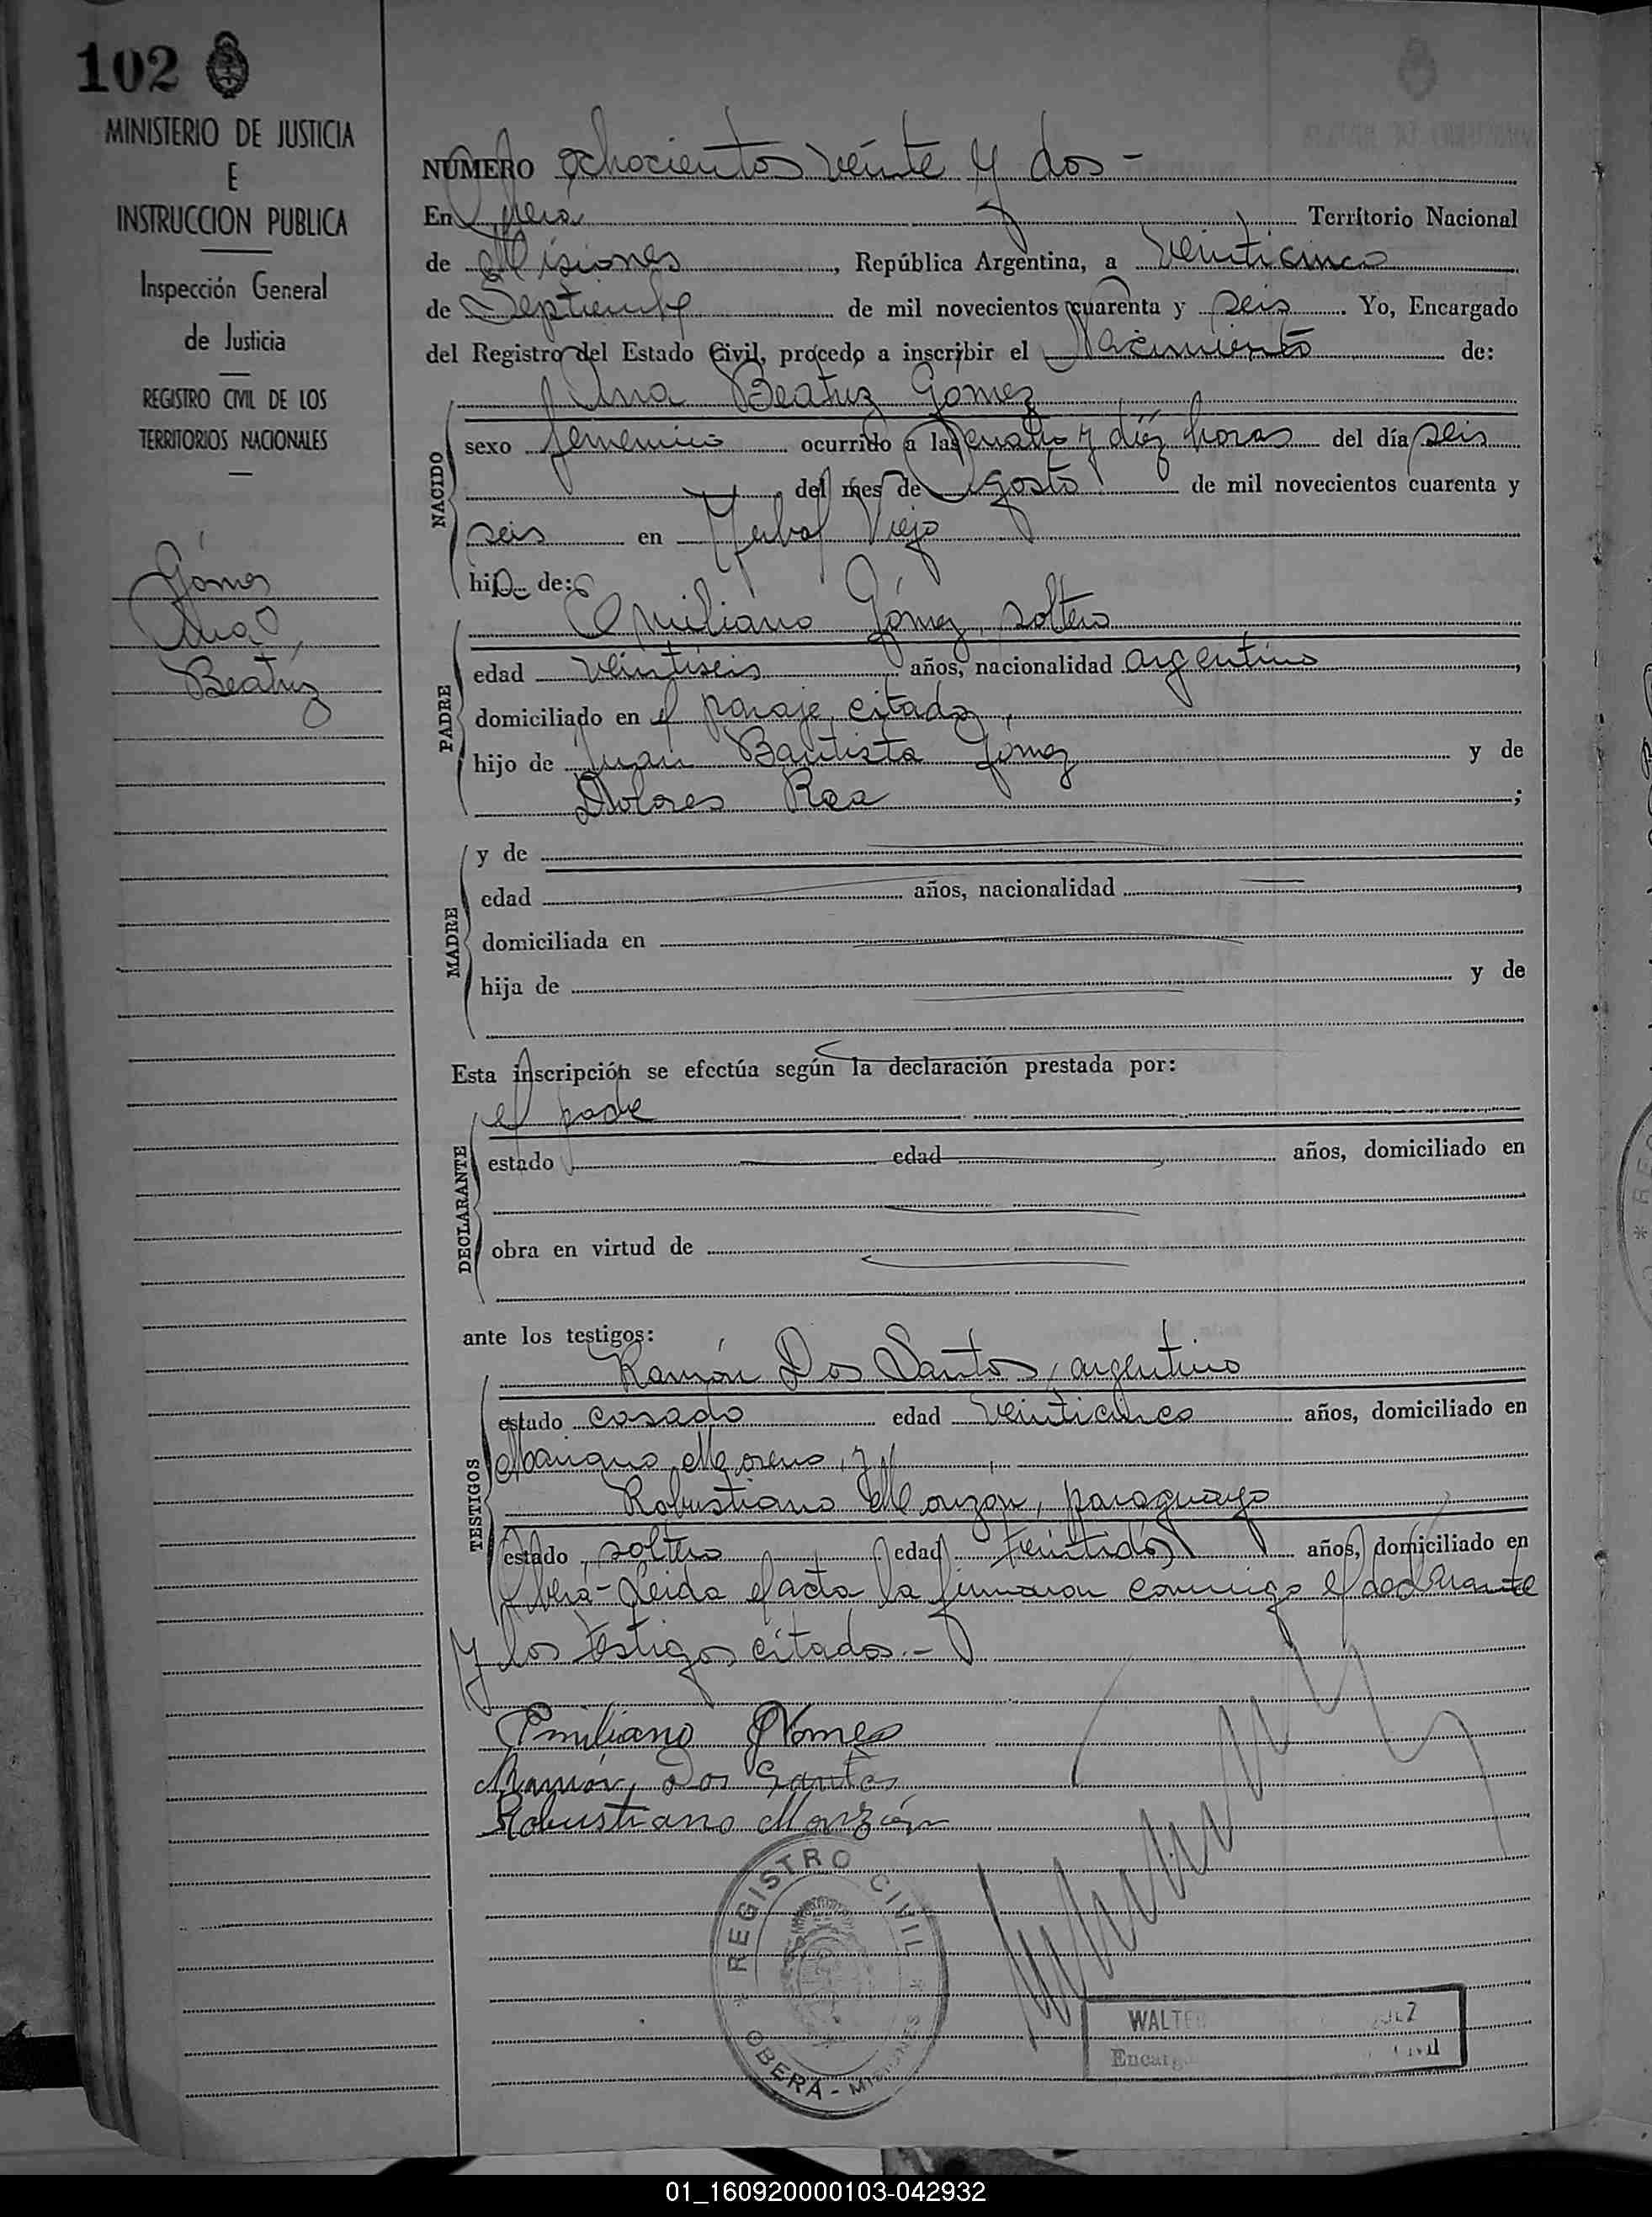 102
MINISTERIO DE JUSTICIA
E
INSTRUCCION PUBLICA
Inspección General
de Justicia
REGISTRO CIVIL DE LOS
TERRITORIOS NACIONALES
Gómez
Ana
Beatriz
NÚMERO ochocientos veinte y dos -
En Oberá Territorio Nacional
de Misiones, República Argentina, a veinticinco
de Septiembre de mil novecientos cuarenta y seis. Yo, Encargado
del Registro del Estado Civil, procedo a inscribir el Nacimiento de:
Ana Beatriz Gómez
NACIDO
sexo femenino ocurrido a las cuatro y diez horas del día seis
del mes de Agosto de mil novecientos cuarenta y
seis en Yerbal Viejo
hija de:
PADRE
Emiliano Gómez, soltero
edad veintiseis años, nacionalidad argentino,
domiciliado en el paraje citado,
hijo de Juan Bautista Gómez y de
Dolores Roa;
MADRE
y de
edad años, nacionalidad,
domiciliada en
hija de y de
Esta inscripción se efectúa según la declaración prestada por:
DECLARANTE
el padre
estado edad años, domiciliado en
obra en virtud de
ante los testigos:
TESTIGOS
Ramón Dos Santos, argentino
estado casado edad veinticinco años, domiciliado en
Moreno, y
Robustiano Monzon, paraguayo
estado soltero edad treintidós años, domiciliado en
Oberá - Leida el acta la firmaron conmigo el declarante
y los testigos citados.-
Emiliano Gomes
Ramón Dos Santos
Robustiano Monzón
REGISTRO CIVIL
OBERÁ - MISIONES
WALTER
Encarg Civil
01_160920000103-042932